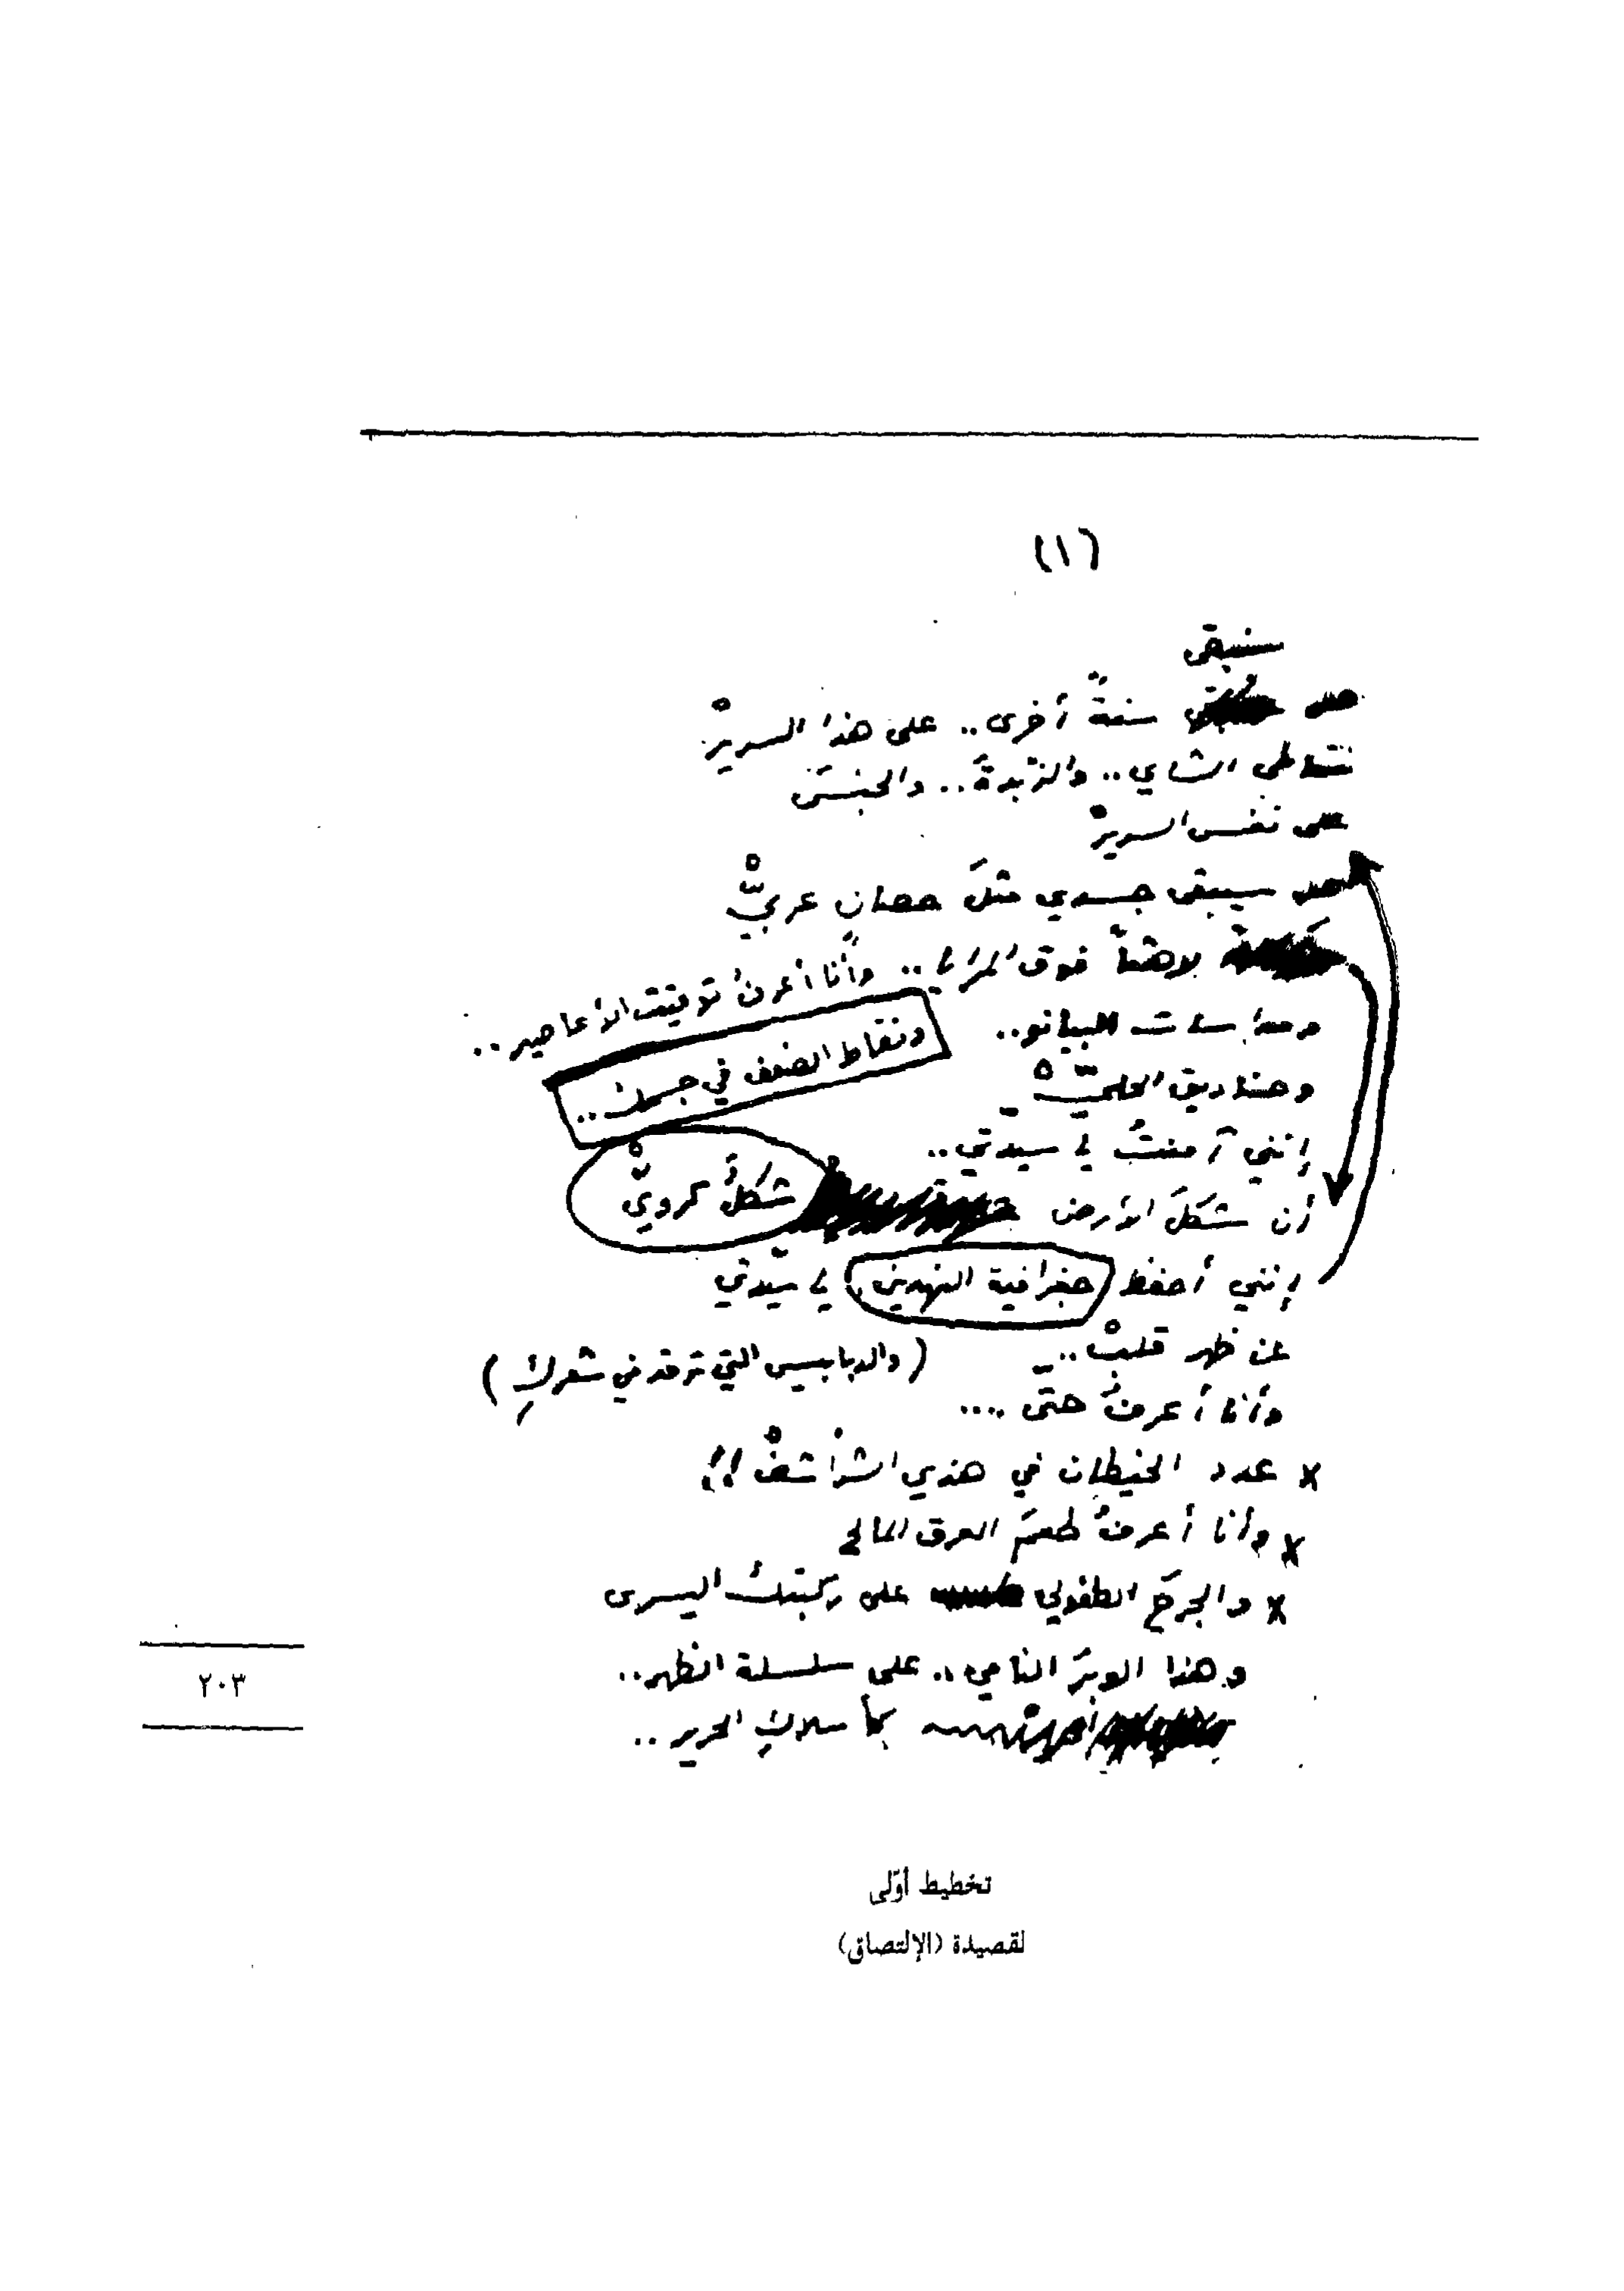 (١)
سنبقى
سنةً أخرى.. على هذا السريرْ
نتعاطى الشاي.. والزبدةَ.. والجنسَ
على نفس السريرْ
سيبقى جسدي مثلَ حصانٍ عربيّْ
لاهثاً فوق المرايا.. وأنا أعرفُ توقيتَ الأعاصير..
البيانو..
ونقاط الضعف في جسمك..
وصناديق الحليّْ
إنني آمنتُ يا سيدتي..
أن شكلَ الأرض شكلٌ كرويّْ
إنني أحفظ جغرافية النهدين، يا سيّدتي
عن ظهر قلبْ..
(والدبابيس التي ترقد في شعركِ)
وأنا أعرفُ حتى ....
x عدد الخيطان في هذي الشراشفْ !!
x وأنا أعرفُ طعمَ العرق المالح
x والجرحَ الطفولي على ركبتك اليسرى
وهذا الوبرَ النامي.. على سلسلة الظهر..
كأسلاكِ الحرير..
٢٠٣
تخطيط أوّلى
لقصيدة (الإلتصاق)